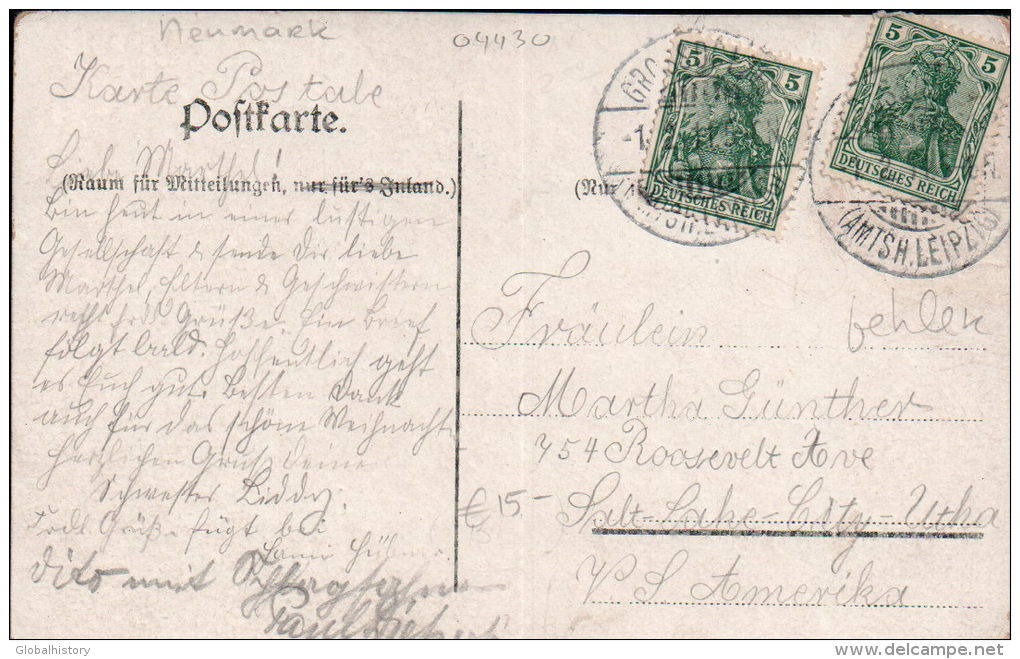 Neumark
04430
Karte Postale
Postkarte.
(Raum für Mitteilungen, nur für's Inland.)
(Nur
5 5
DEUTSCHES REICH
5 5
DEUTSCHES REICH
(AMTSH. LEIPZIG)
Bin heut in einer lustigen
Gesellschaft & sende Dir liebe
Marthel, Eltern & Geschwistern
recht Grüße. Ein Brief
folgt bald. Hoffentlich geht
es Euch gut. Besten Dank
auch für das schöne Weihnacht
Herzlichen Gruß Deine
Schwester Liddy.
Grüße fügt bei
Hübner
dito mit
Paul
Fräulein
fehlen
Martha Günther
754 Roosevelt Ave
Salt-Lake-City-Utha
V S Amerika
€ 15-
Globalhistory